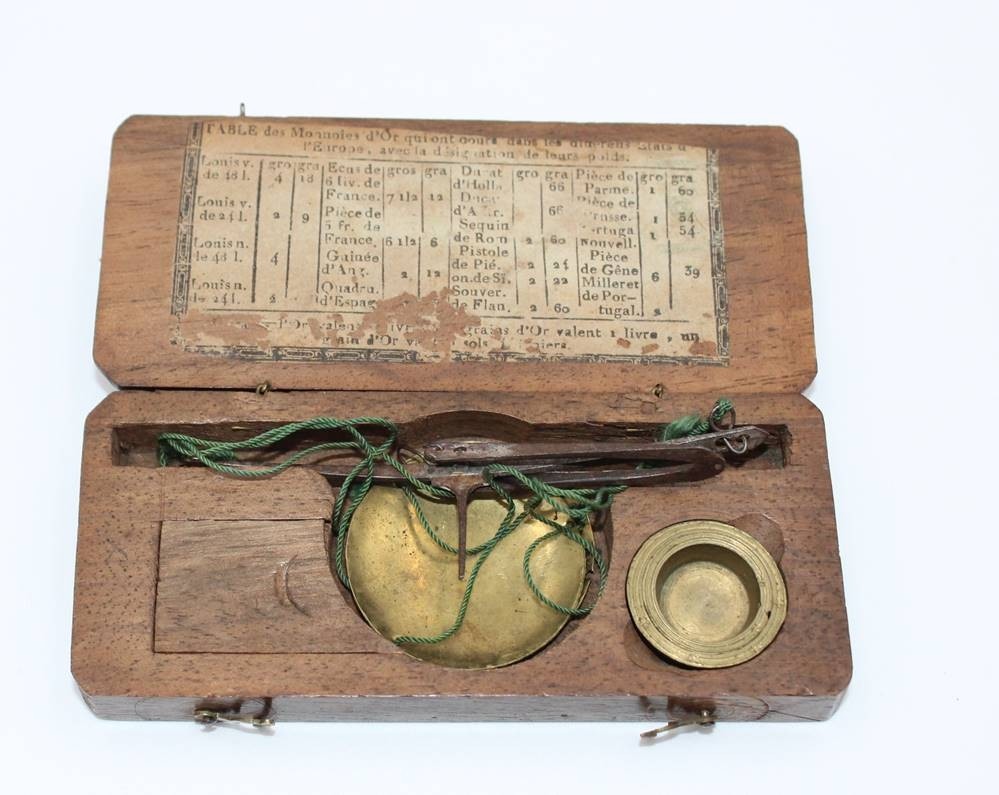 TABLE des Monnoies d'Or qui ont cours dans les différens Etats
l'Europe, avec la désignation de leurs poids.
Louis v. de 48 l. gro 4 gra 18
Louis v. de 24 l. 2 9
Louis n. de 48 l. 4
Louis n. de 24 l. 2
Ecus de 6 liv. de France. gros 7 1/2 gra 12
Pièce de 5 fr. de France. 6 1/2 6
Guinée d'Ang. 2 12
Quadru. d'Espag
Ducat d'Holla gro gra 66
Duca d'A 66
Sequin de Rom 2 60
Pistole de Pié. 2 24
on. de Si. 2 22
Souver. de Flan. 2 60
Pièce de Parme. gro 1 gra 60
Pièce de 1 54
1 54
Nouvell. Pièce de Gêne 6 39
Milleret de Por- tugal. 2
l'Or valen livr grains d'Or valent 1 livre, un
grain d'Or va sols